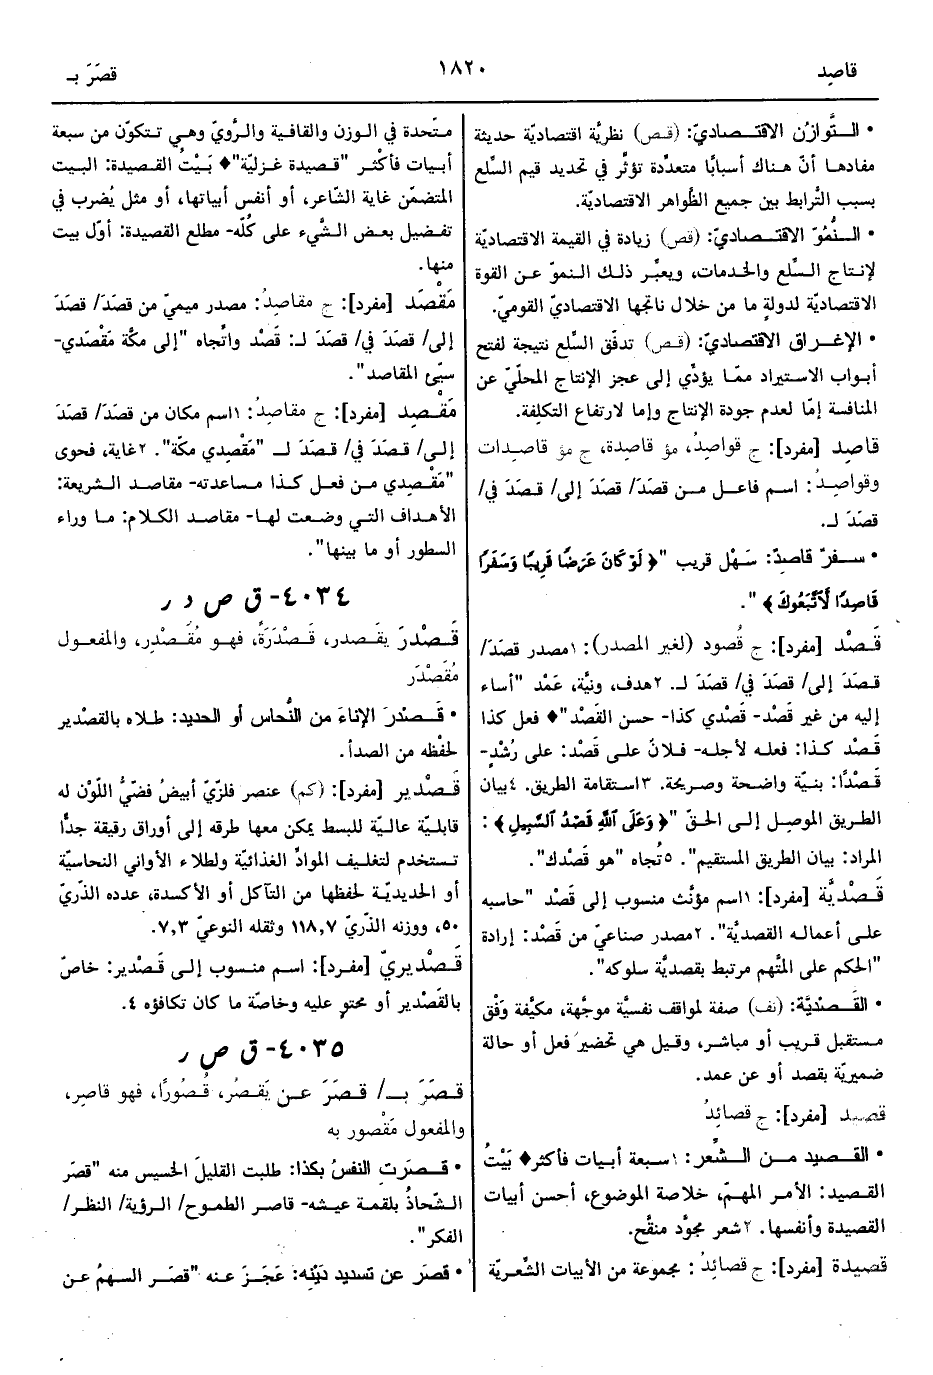 قاصِد
١٨٢٠
قصَرَ بـ
• التَّوازُن الاقتصاديّ: (قص) نظريَّة اقتصاديّة حديثة
مفادها أنّ هناك أسبابًا متعدّدة تؤثّر في تحديد قيم السِّلع
بسبب التَّرابط بين جميع الظَّواهر الاقتصاديّة.
• النُّمُوّ الاقتصاديّ: (قص) زيادة في القيمة الاقتصاديّة
لإنتاج السِّلع والخدمات، ويعبِّر ذلك النموّ عن القوة
الاقتصاديّة لدولةٍ ما من خلال ناتجها الاقتصاديّ القوميّ.
• الإغراق الاقتصاديّ: (قص) تدفّق السِّلع نتيجة لفتح
أبواب الاستيراد ممّا يؤدِّي إلى عجز الإنتاج المحلّيّ عن
المنافسة إمّا لعدم جودة الإنتاج وإما لارتفاع التكلفة.
قاصِد [مفرد]: ج قواصِدُ، مؤ قاصدة، ج مؤ قاصِدات
وقواصِدُ: اسم فاعل من قصَدَ/ قصَدَ إلى/ قصَدَ في/
قصَدَ لـ.
• سفرٌ قاصِدٌ: سَهْل قريب "﴿ لَوْ كَانَ عَرَضًا قَرِيبًا وَسَفَرًا
قَاصِدًا لاَتَّبَعُوكَ ﴾ ".
قَصْد [مفرد]: ج قُصود (لغير المصدر): ١مصدر قصَدَ/
قصَدَ إلى/ قصَدَ في/ قصَدَ لـ. ٢هدف، ونيَّة، عَمْد "أساء
إليه من غير قَصْد- قَصْدي كذا- حسن القَصْد"♦ فعل كذا
قَصْد كذا: فعله لأجله- فلانٌ على قَصْد: على رُشْدٍ-
قَصْدًا: بنيّة واضحة وصريحة. ٣استقامة الطريق. ٤بيان
الطريق الموصل إلى الحقّ "﴿ وَعَلَى اللَّهِ قَصْدُ السَّبِيلِ ﴾ :
المراد: بيان الطريق المستقيم". ٥تُجاه "هو قَصْدك".
قَصْديَّة [مفرد]: ١اسم مؤنَّث منسوب إلى قَصْد "حاسبه
على أعماله القصديَّة". ٢مصدر صناعيّ من قَصْد: إرادة
"الحكم على المتَّهم مرتبط بقصديَّة سلوكه".
• القَصْديَّة: (نف) صفة لمواقف نفسيَّة موجَّهة، مكيّفة وَفْق
مستقبل قريب أو مباشر، وقيل هي تحضيرُ فعل أو حالة
ضميريّة بقصد أو عن عمد.
قصيد [مفرد]: ج قصائدُ
• القصيد من الشِّعر: ١سبعة أبيات فأكثر♦ بَيْتُ
القصيد: الأمر المهمّ، خلاصة الموضوع، أحسن أبيات
القصيدة وأنفسها. ٢شعر مجوَّد منقَّح.
قصيدة [مفرد]: ج قصائدُ: مجموعة من الأبيات الشّعريّة
متّحدة في الوزن والقافية والرَّويّ وهي تتكوّن من سبعة
أبيات فأكثر "قصيدة غزليّة"♦ بَيْتُ القصيدة: البيت
المتضمّن غاية الشّاعر، أو أنفس أبياتها، أو مثل يُضرب في
تفضيل بعض الشّيء على كُلّه- مطلع القصيدة: أوّل بيت
منها.
مَقْصَد [مفرد]: ج مقاصِدُ: مصدر ميميّ من قصَدَ/ قصَدَ
إلى/ قصَدَ في/ قصَدَ لـ: قَصْد واتّجاه "إلى مكّة مَقْصَدي-
سيِّئ المقاصد".
مَقْصِد [مفرد]: ج مقاصِدُ: ١اسم مكان من قصَدَ/ قصَدَ
إلى/ قصَدَ في/ قصَدَ لـ "مَقْصِدي مكّة". ٢غاية، فحوى
"مَقْصِدي من فعل كذا مساعدته- مقاصد الشريعة:
الأهداف التي وضعت لها- مقاصد الكلام: ما وراء
السطور أو ما بينها".
٤٠٣٤- ق ص د ر
قَصْدرَ يقصدر، قَصْدَرَةً، فهو مُقَصْدِر، والمفعول
مُقَصْدَر
• قَصْدَرَ الإناءَ من النُّحاس أو الحديد: طلاه بالقصْدير
لحفْظه من الصدأ.
قَصْدير [مفرد]: (كم) عنصر فلزّيّ أبيضُ فضّيُّ اللّوْن له
قابليّة عالية للبسط يمكن معها طرقه إلى أوراق رقيقة جدًّا
تستخدم لتغليف الموادّ الغذائيّة ولطلاء الأواني النحاسيّة
أو الحديديّة لحفظها من التآكل أو الأكسدة، عدده الذّريّ
٥٠، ووزنه الذّريّ ١١٨,٧ وثقله النوعيّ ٧,٣.
قَصْديريّ [مفرد]: اسم منسوب إلى قَصْدير: خاصّ
بالقَصْدير أو محتوٍ عليه وخاصّة ما كان تكافؤه ٤.
٤٠٣٥- ق ص ر
قصَرَ بـ/ قصَرَ عن يَقصُر، قُصُورًا، فهو قاصِر،
والمفعول مَقْصور به
• قصَرت النفسُ بكذا: طلبت القليلَ الخسيس منه "قصَر
الشّحاذُ بلقمة عيشه- قاصر الطموح/ الرؤية/ النظر/
الفكر".
• قصَر عن تسديد دَيْنه: عَجَزَ عنه "قصَر السهمُ عن